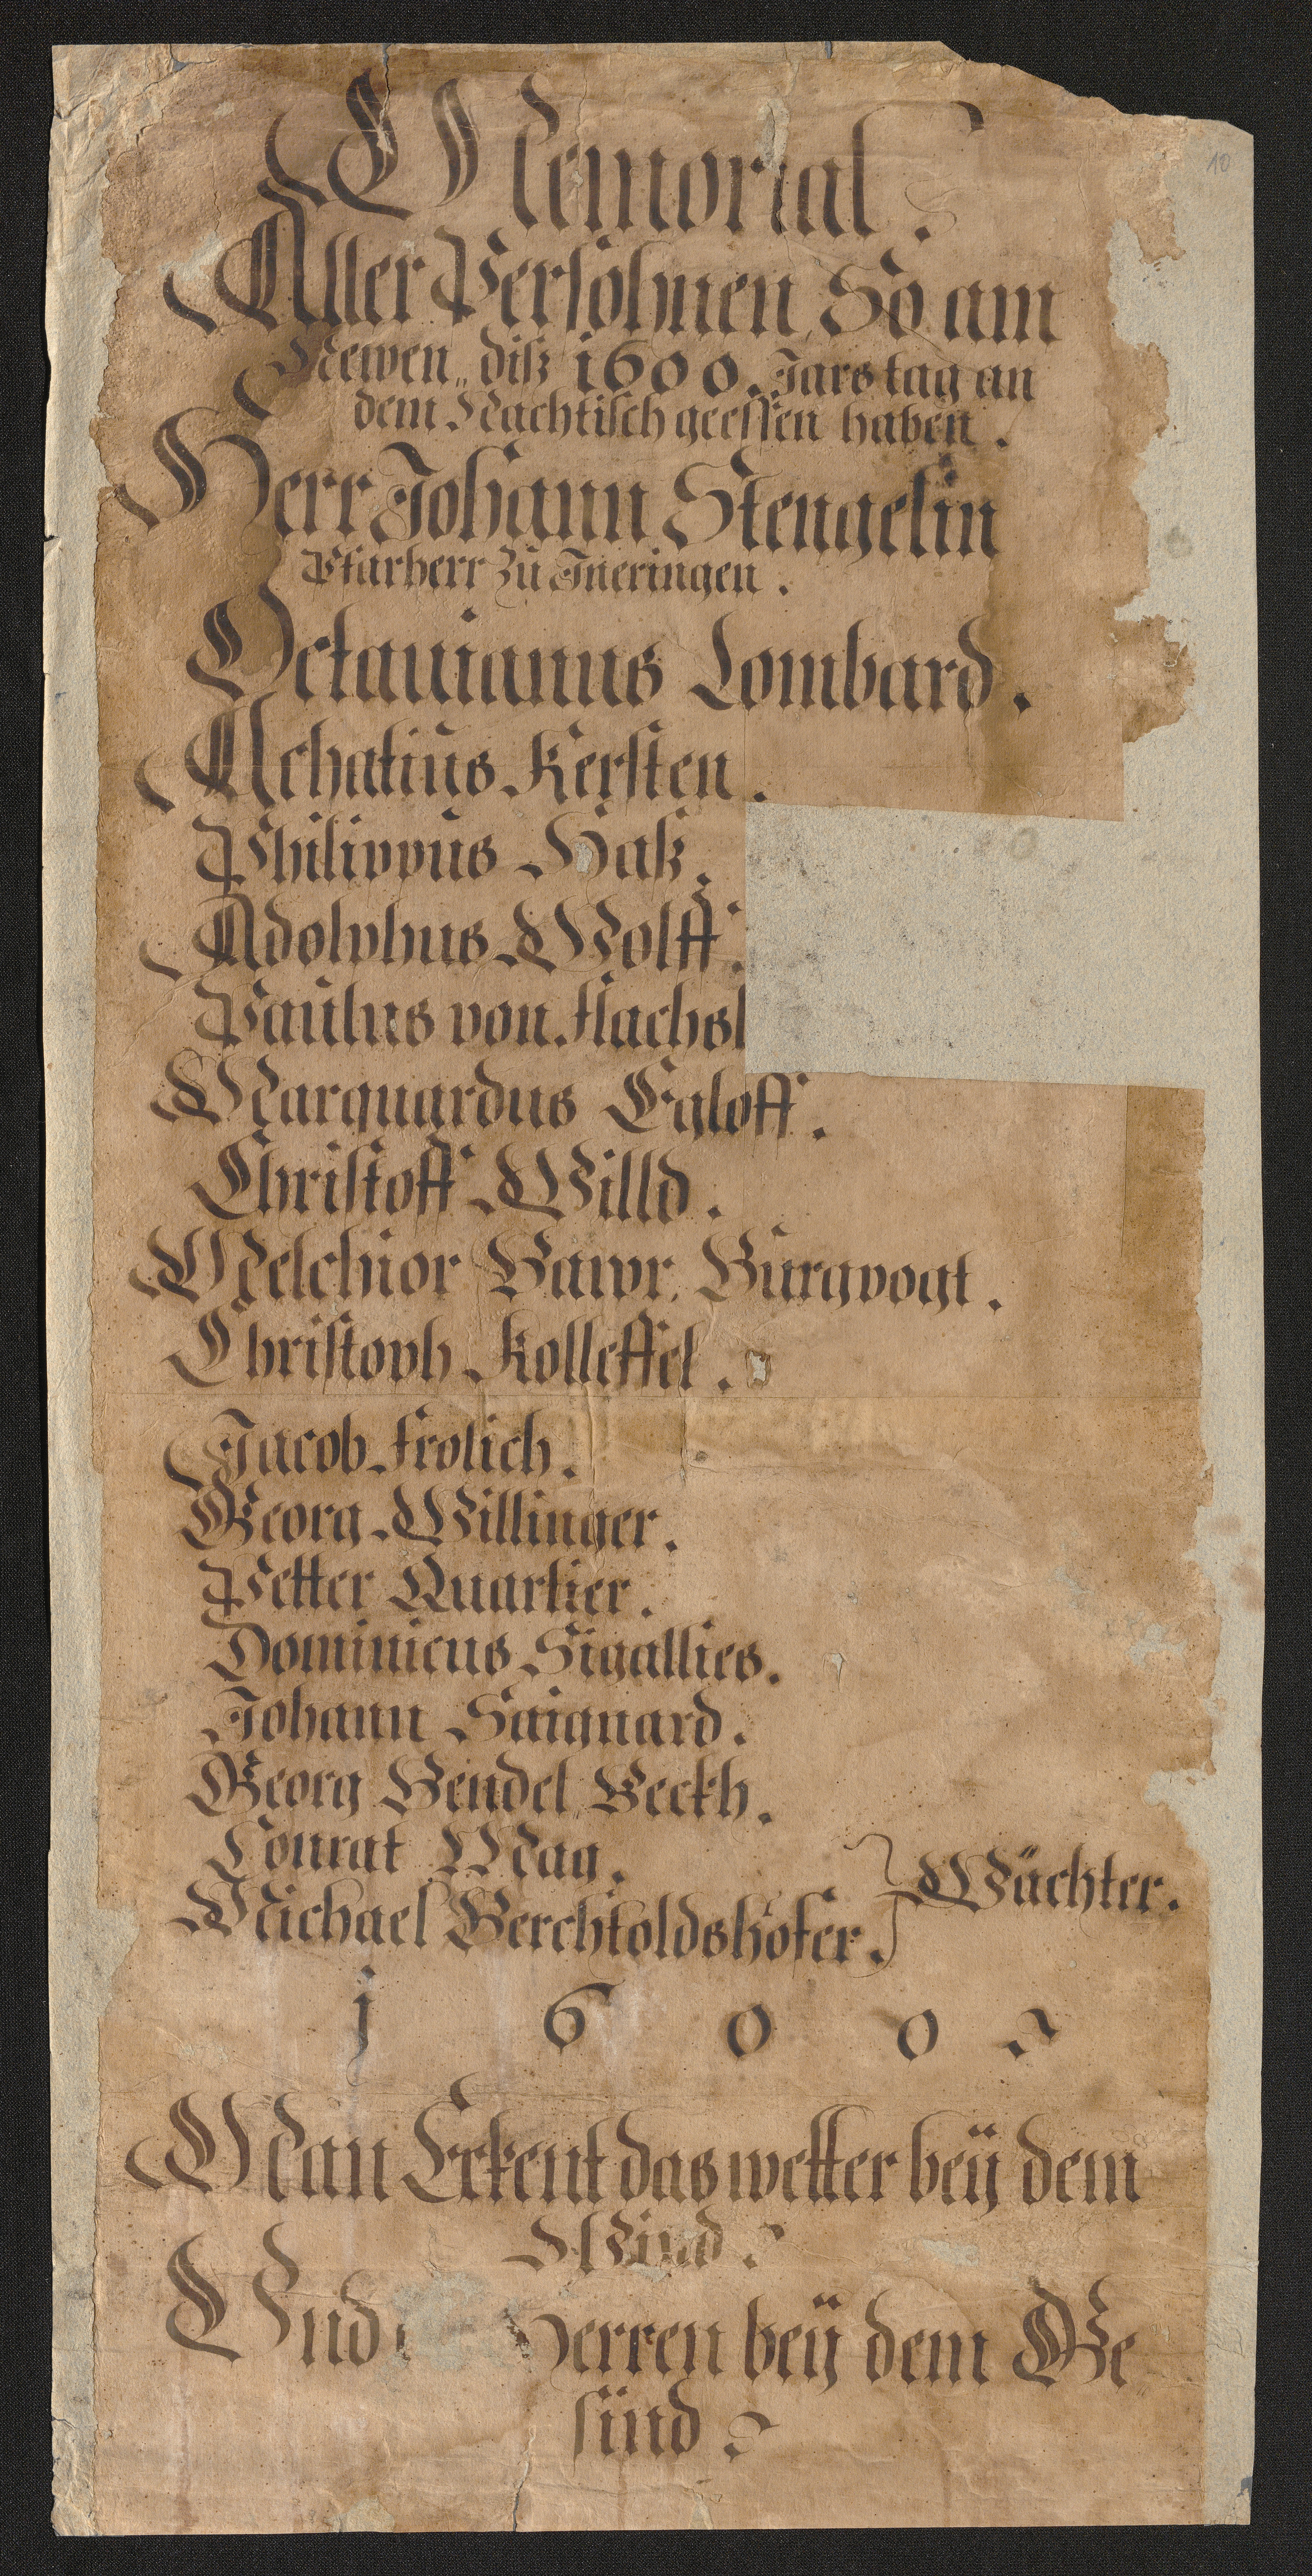 Memorial.
Aller Persohnen, So am
Newen„ diß 1600. Jars tag an
dem Nachtisch geessen haben.
Herr Johann Stengelin
Pfarherr zu Ineringen.
Octauianus Lombard.
Achatius Kersten.
Philippus Haß.
Adolphus Wolff.
Paulus von Flachsl
Marquardus Egloff.
Christoff Willd.
Melchior Bawr. Burgvogt.
Christoph Kolleffel.
Jacob Frölich.
Georg Willinger.
Petter Quartier.
Dominicus Sigallies.
Johann Saignard.
Georg Hendel Beckh.
Conrat Mag.
Michael Berchtoldshofer.
Wächter.
1600
Man Erkent das wetter beÿ dem
Wind.
Vnd Herren beÿ dem Ge„
sünd.
10